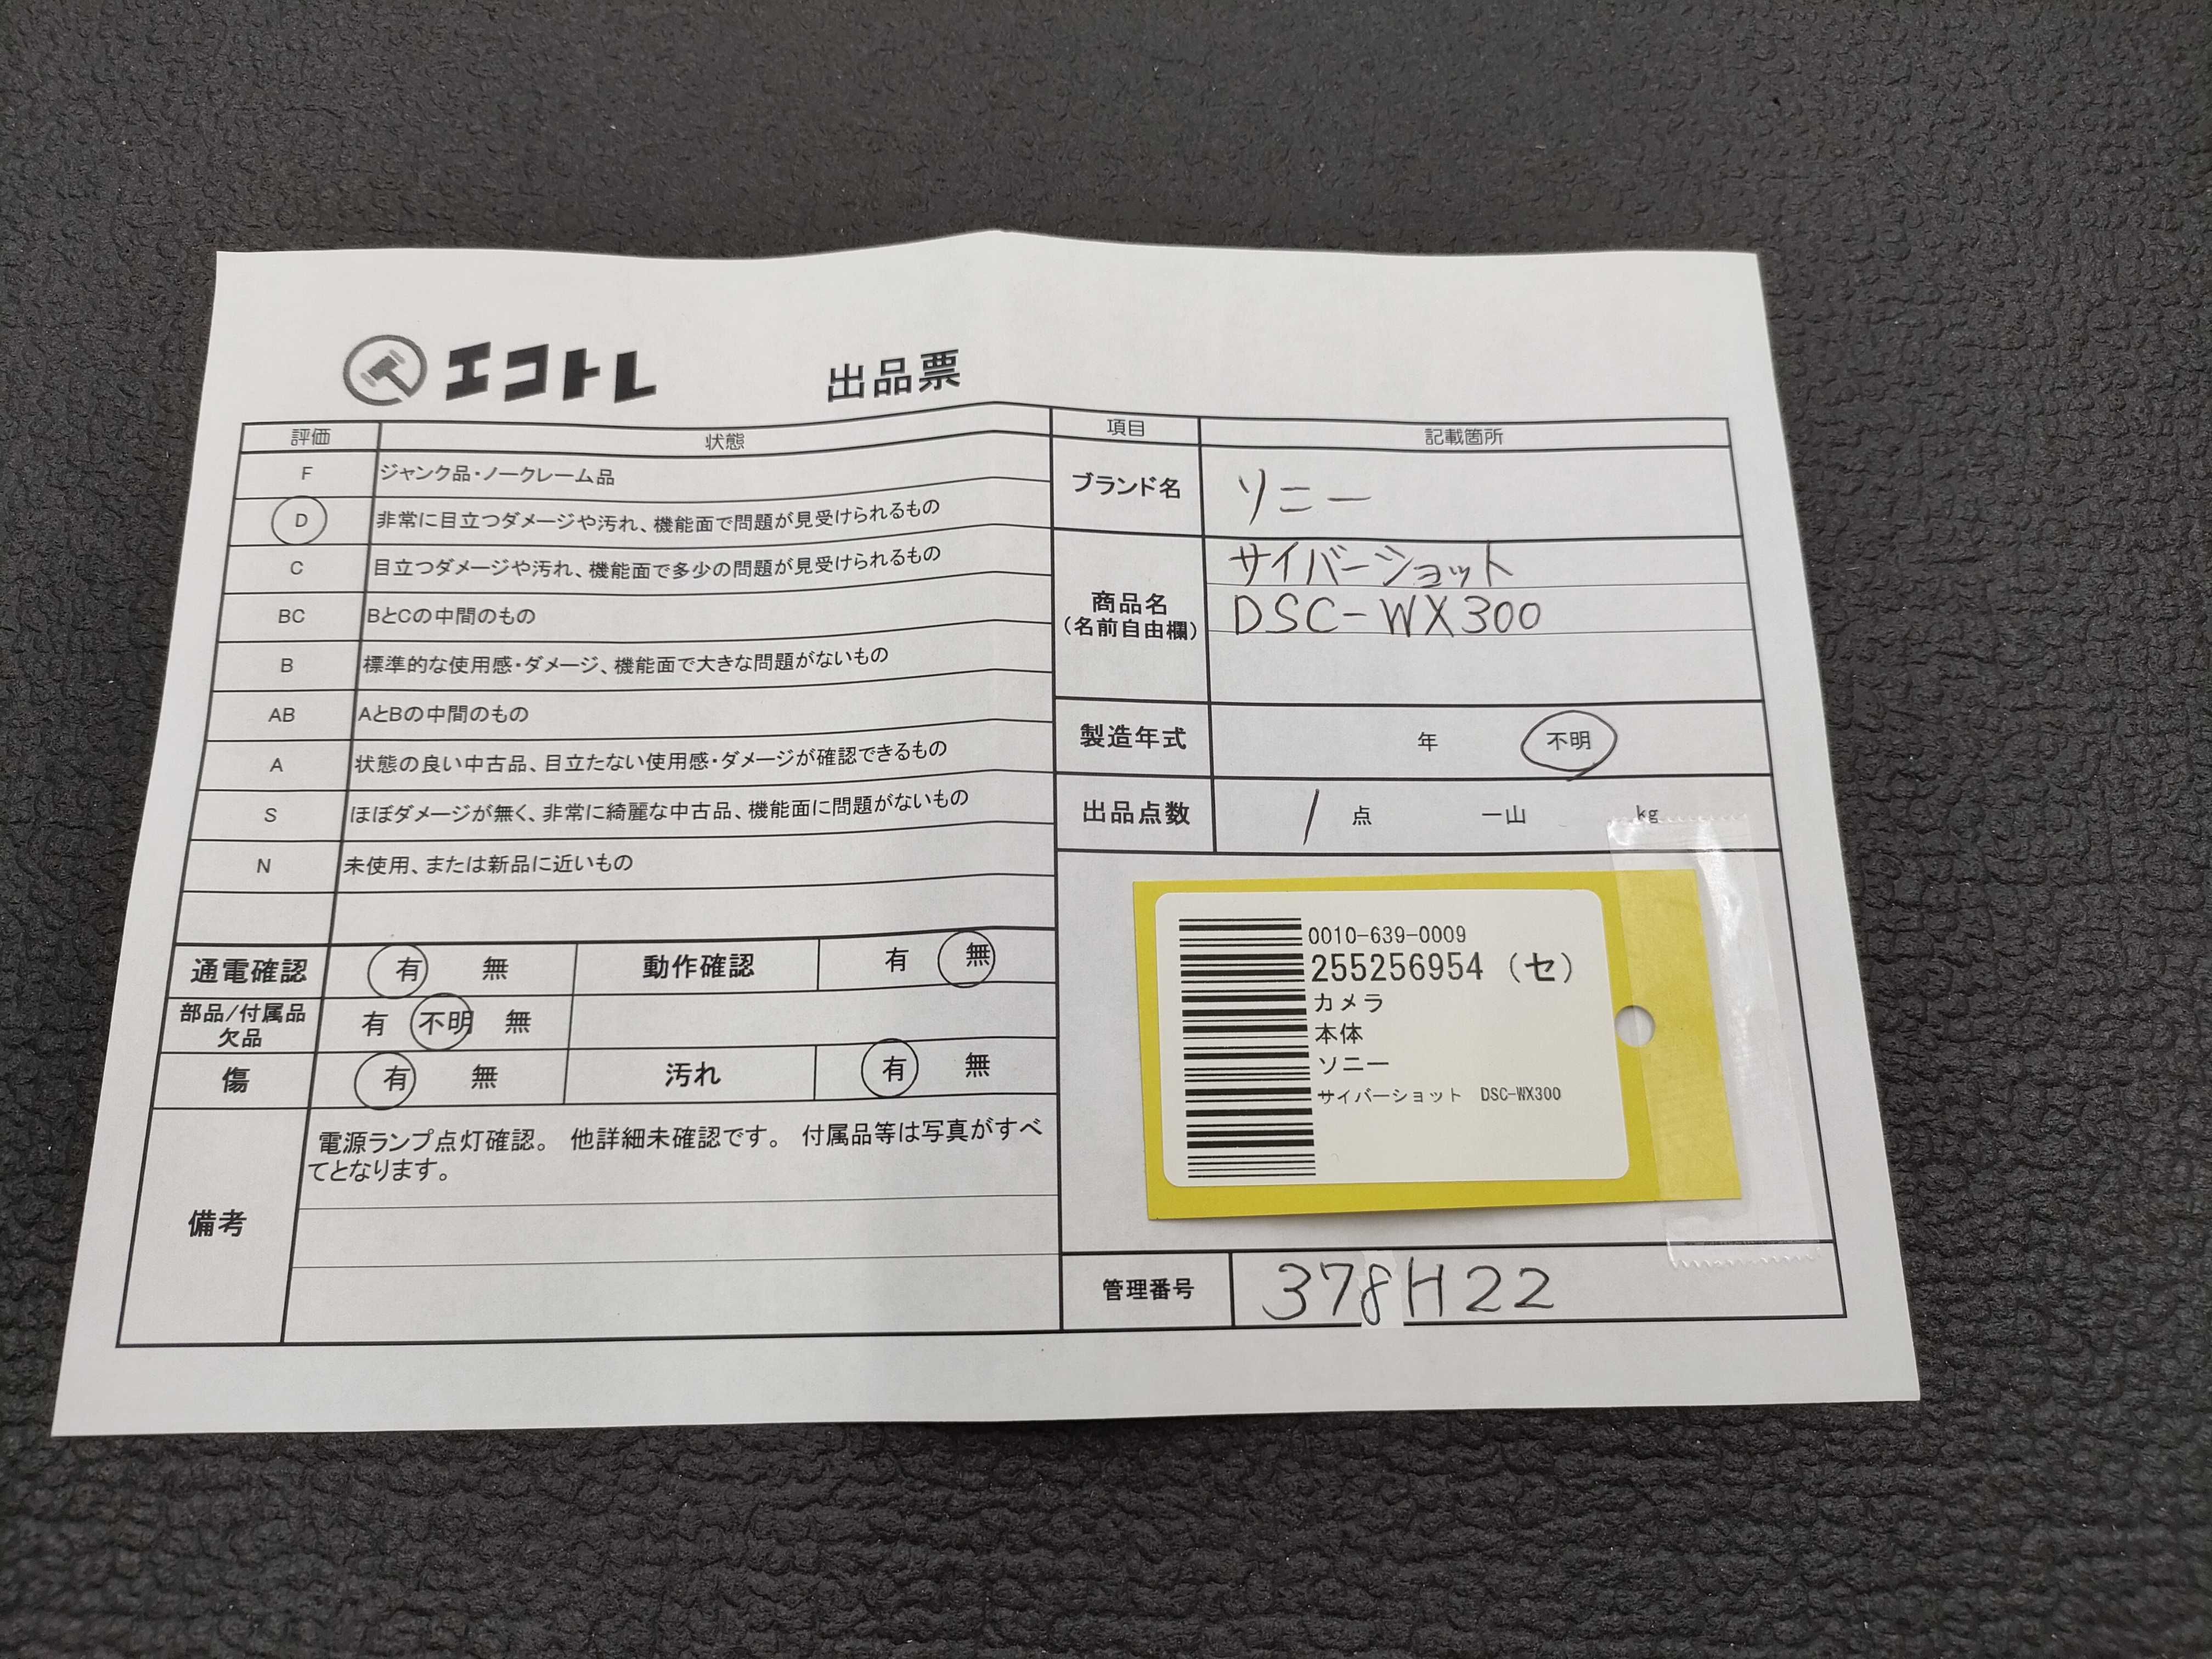 エコトレ 出品票
評価 状態
F ジャンク品・ノークレーム品
D 非常に目立つダメージや汚れ、機能面で問題が見受けられるもの
C 目立つダメージや汚れ、機能面で多少の問題が見受けられるもの
BC BとCの中間のもの
B 標準的な使用感・ダメージ、機能面で大きな問題がないもの
AB AとBの中間のもの
A 状態の良い中古品、目立たない使用感・ダメージが確認できるもの
S ほぼダメージが無く、非常に綺麗な中古品、機能面に問題がないもの
N 未使用、または新品に近いもの
通電確認 有 無 動作確認 有 無
部品/付属品 有 不明 無
欠品
傷 有 無 汚れ 有 無
備考
電源ランプ点灯確認。 他詳細未確認です。 付属品等は写真がすべ
てとなります。
項目 記載箇所
ブランド名 ソニー
商品名
(名前自由欄)
サイバーショット
DSC-WX300
製造年式 年 不明
出品点数 1 点 一山 kg
0010-639-0009
255256954 (セ)
カメラ
本体
ソニー
サイバーショット DSC-WX300
管理番号 378H22